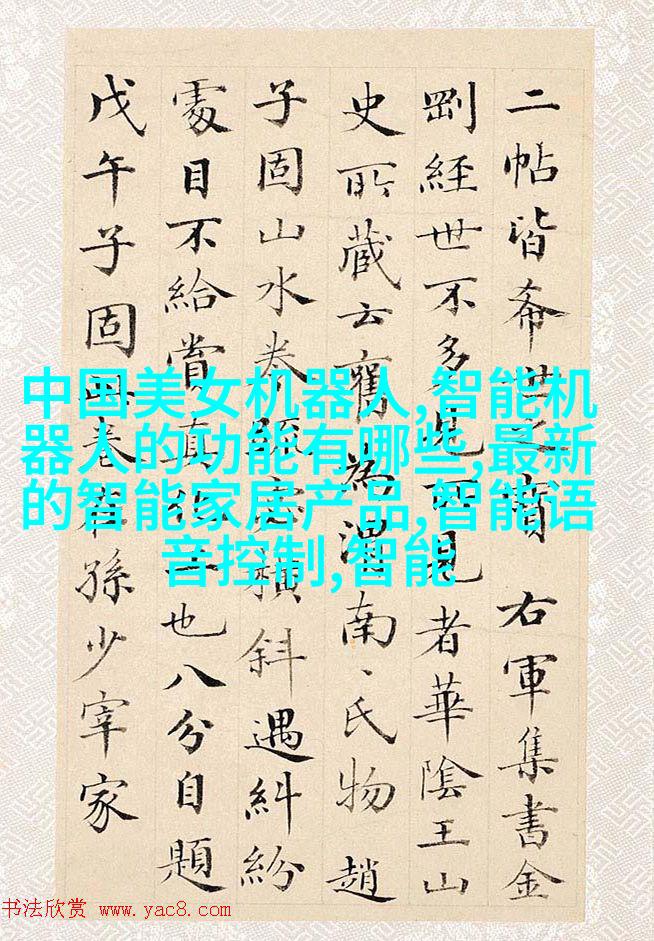 二帖皆希世之寶 右軍集書金
剛經世不多見可見者華陰王山
史所藏云舊為渭南、氏物趙
子固山水卷疏密橫斜遇糾紛
處目不給賞真也八分自題
戊午子固卷孫少宰家
中国美女机器人,智能机
器人的功能有哪些,最新
的智能家居产品,智能语
音控制,智能
书法欣赏 www.yac8.com